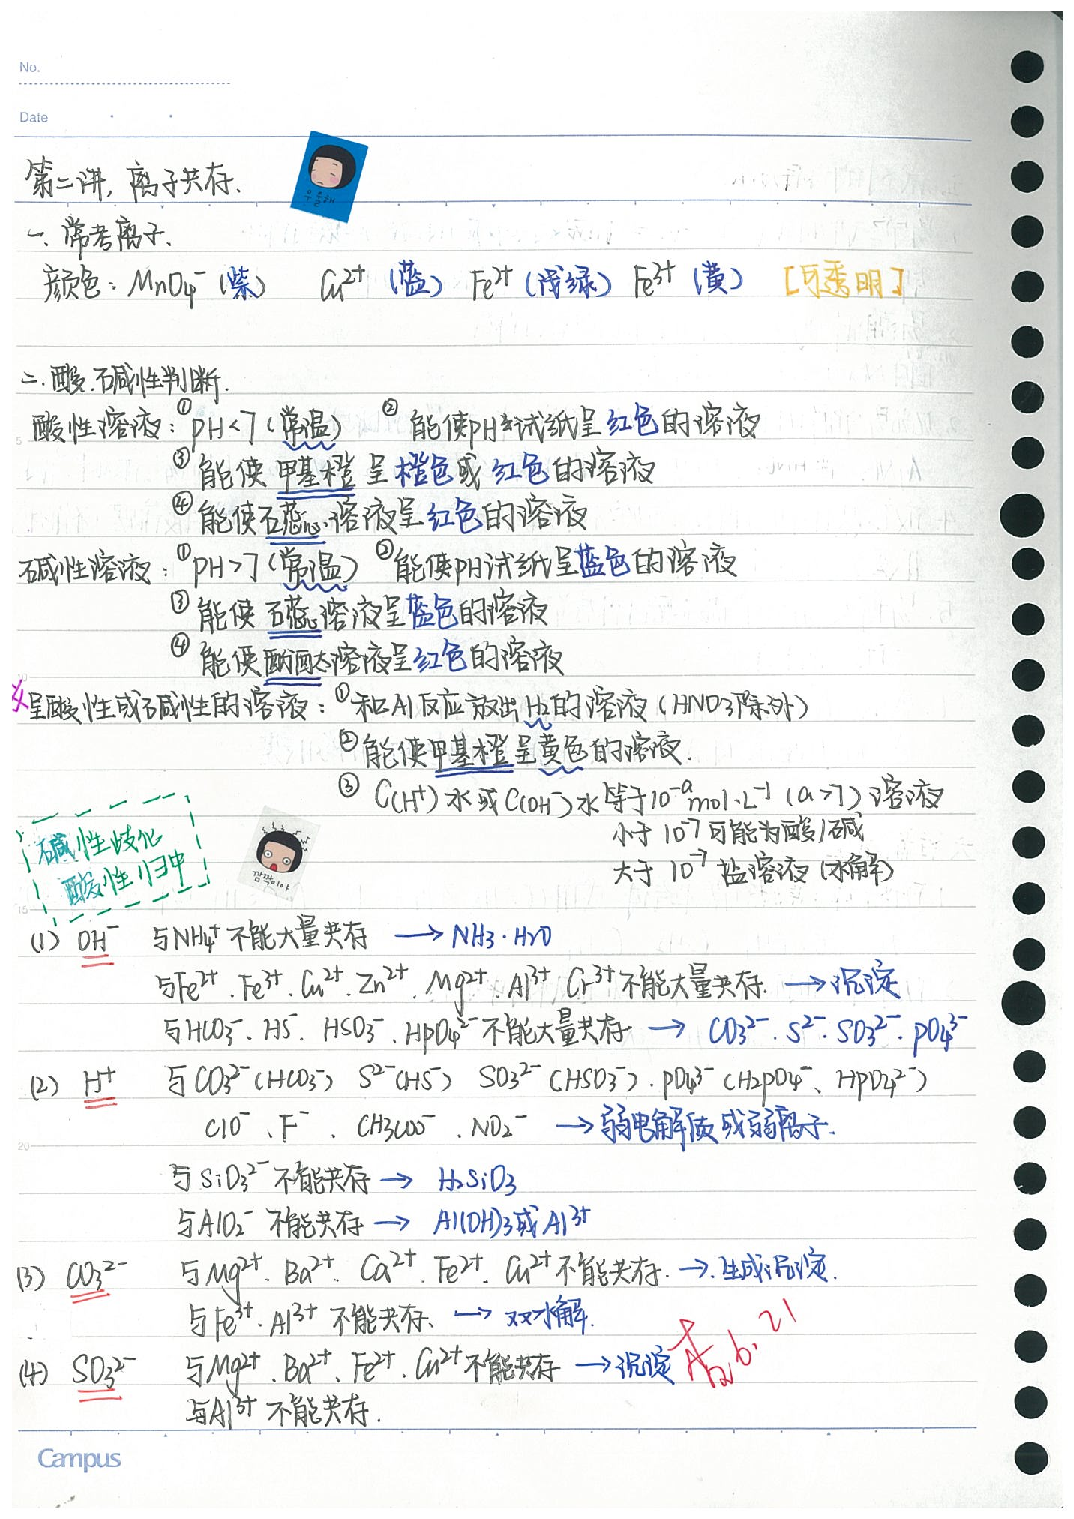 No.
Date
第二讲, 离子共存、
一、常考离子、
颜色: MnO4⁻ (紫) Cu²⁺ (蓝) Fe²⁺ (浅绿) Fe³⁺ (黄) [与透明]
二、酸、碱性判断.
酸性溶液: ① pH<7 (常温) ② 能使pH试纸呈红色的溶液
③ 能使甲基橙呈橙色或红色的溶液
④ 能使石蕊溶液呈红色的溶液
碱性溶液: ① pH>7 (常温) ② 能使pH试纸呈蓝色的溶液
③ 能使石蕊溶液呈蓝色的溶液
④ 能使酚酞溶液呈红色的溶液
呈酸性或碱性的溶液: ① 和Al反应放出H2的溶液 (HNO3除外)
② 能使甲基橙呈黄色的溶液.
③ C(H⁺)水或C(OH⁻)水等于10⁻ᵃmol·L⁻¹ (a>7) 溶液
小于10⁻⁷可能为酸/碱
大于10⁻⁷ 盐溶液 (水解)
碱性歧化
酸性归中
깜짝이야
(1) OH⁻ 与NH4⁺不能大量共存 → NH3·H2O
与Fe²⁺、Fe³⁺、Cu²⁺、Zn²⁺、Mg²⁺、Al³⁺ Cr³⁺不能大量共存. → 沉淀
与HCO3⁻、HS⁻、HSO3⁻、HPO4²⁻不能大量共存 → CO3²⁻、S²⁻、SO3²⁻、PO4³⁻
(2) H⁺ 与CO3²⁻(HCO3⁻) S²⁻(HS⁻) SO3²⁻(HSO3⁻)、PO4³⁻(H2PO4⁻、HPO4²⁻)
ClO⁻、F⁻、CH3COO⁻、NO2⁻ → 弱电解质或弱离子.
与SiO3²⁻不能共存 → H2SiO3
与AlO2⁻不能共存 → Al(OH)3或Al³⁺
(3) CO3²⁻ 与Mg²⁺、Ba²⁺、Ca²⁺、Fe²⁺、Cu²⁺不能共存. → 生成沉淀.
与Fe³⁺、Al³⁺不能共存、 → 双水解.
(4) SO3²⁻ 与Mg²⁺、Ba²⁺、Fe²⁺、Cu²⁺不能共存 → 沉淀
与Al³⁺不能共存.
6.21
Campus